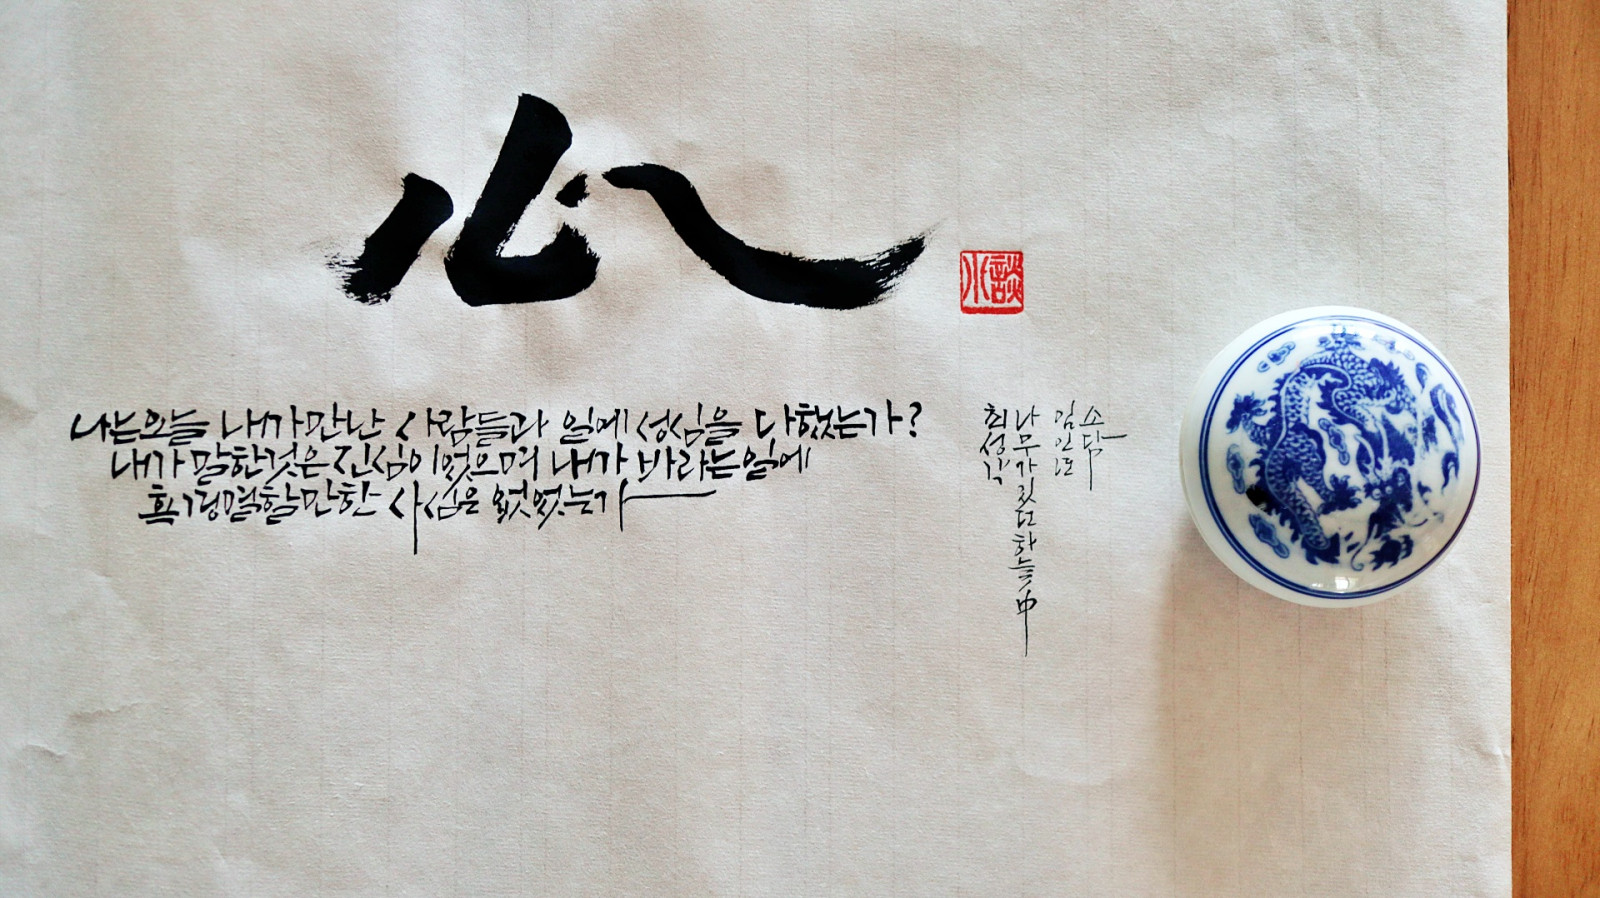 心
小談
나는오늘 내가만난 사람들과 일에 성심을 다했는가?
내가 말한것은 진심이었으며 내가 바라는일에
혹 경멸할만한 사심은 없었는가
최성각
나무가있던하늘中
임인년
소담